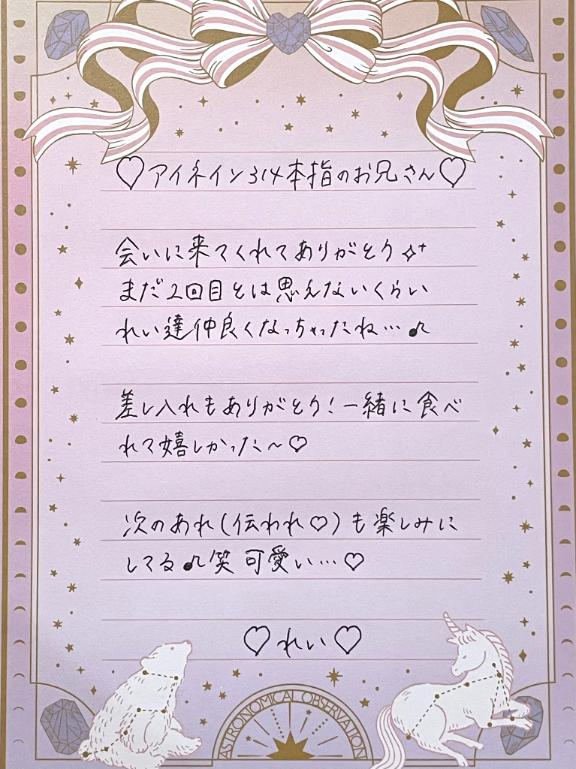 ♡アイネイン314本指のお兄さん♡
会いに来てくれてありがとう✧⁺
まだ2回目とは思えないくらい
れい達仲良くなっちゃったね…♫
差し入れもありがとう!一緒に食べ
れて嬉しかった〜♡
次のあれ(伝われ♡)も楽しみに
してる♫笑 可愛い…♡
♡れい♡
ASTRONOMICAL OBSERVATION